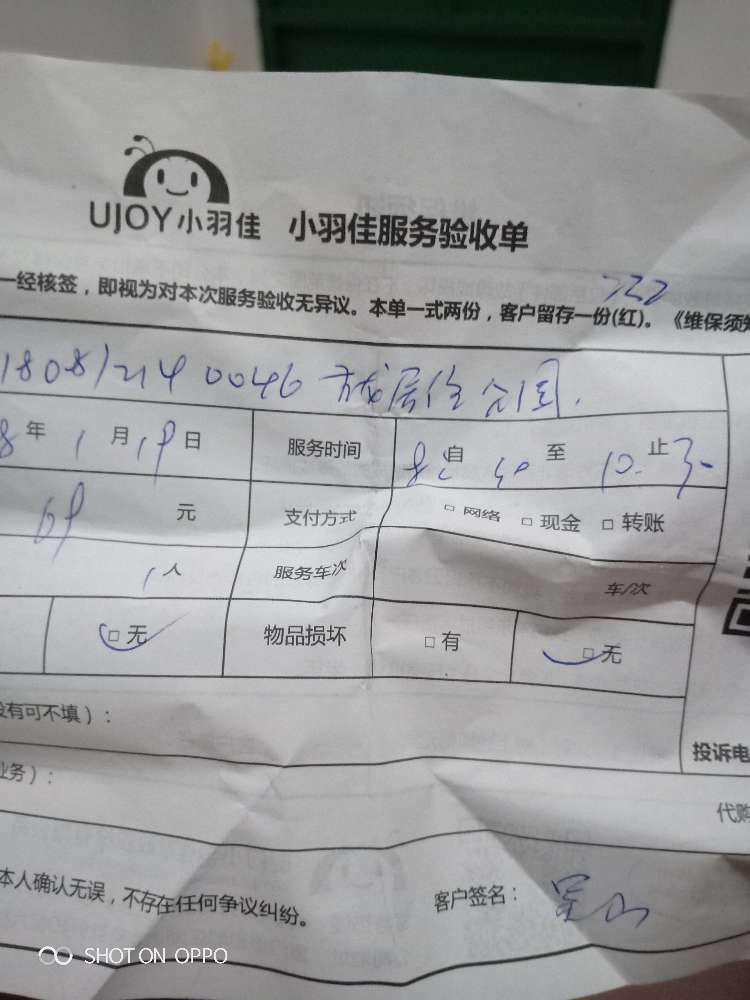 UJOY小羽佳 小羽佳服务验收单
一经核签，即视为对本次服务验收无异议。本单一式两份，客户留存一份(红)。《维保须知
722
18081214 0046
8年1月19日 服务时间 自 至 10.30 止
69元 支付方式 □网络 □现金 □转账
1人 服务车次 车/次
□无 物品损坏 □有 □无
没有可不填）：
投诉电
业务）：
代购
本人确认无误，不存在任何争议纠纷。 客户签名：
SHOT ON OPPO